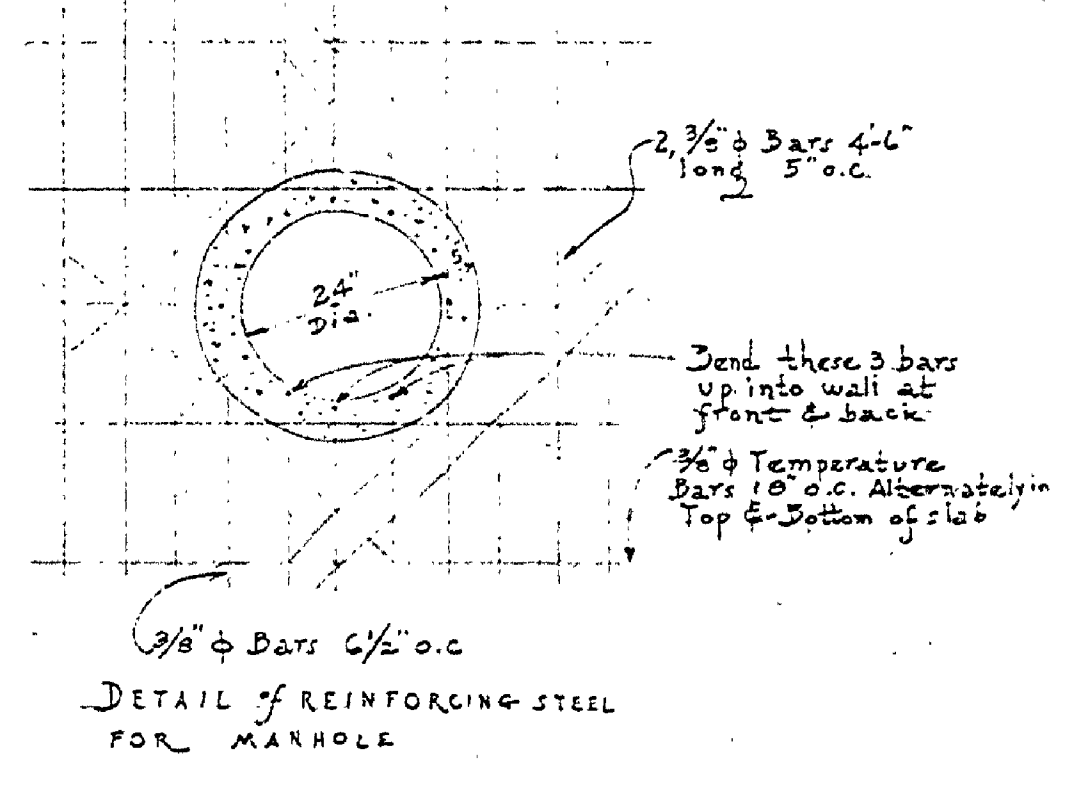 2, 3/8" ϕ Bars 4'-6"
long 5" o.c.
5"
24"
Dia.
Bend these 3 bars
up into wall at
front & back
3/8" ϕ Temperature
Bars 18" o.c. Alternately in
Top & Bottom of slab
3/8" ϕ Bars 6 1/2" o.c
DETAIL of REINFORCING STEEL
FOR MANHOLE